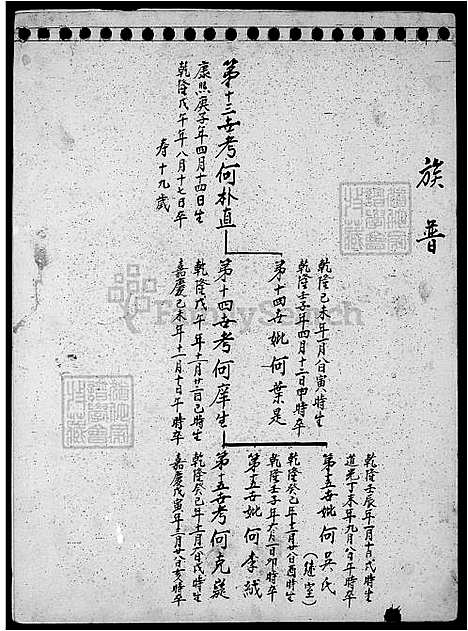 族普
第十三世考何朴直
康熙庚子年四月十四日生
乾隆戊午年八月十七日卒
寿十九歲
乾隆己未年一月八日寅時生
乾隆壬子年四月十二日申時卒
第十四世妣何葉是
第十四世考何庠生
乾隆戊午年十一月廿二日己時生
嘉慶己未年十一月十日午時卒
乾隆壬辰年一月十日戌時生
道光丁未年九月八日午時卒
第十五世妣何吳氏
(繼室)
乾隆癸己年十二月廿八日酉時生
乾隆壬子年六月二日卯時卒
第十五世妣何李絨
第十五世考何克嶷
乾隆癸己年十二月六日戌時生
嘉慶戊寅年十二月廿八日亥時卒
FamilySearch